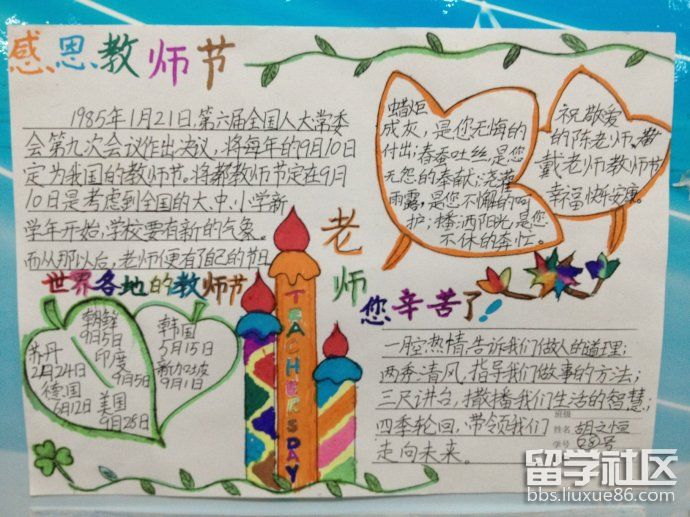 感恩教师节
1985年1月21日,第六届全国人大常委
会第九次会议作出决议,将每年的9月10日
定为我国的教师节。将都教师节定在9月
10日是考虑到全国的大、中、小学新
学年开始,学校要有新的气象。
而从那以后,老师便有了自己的节日
蜡炬
成灰,是您无悔的
付出;春蚕吐丝,是您
无怨的奉献;浇灌
雨露,是您不懈的呵
护;播洒阳光,是您
不休的奔忙。
祝敬爱
的陈老师、
戴老师教师节
幸福快乐安康。
世界各地的教师节
朝鲜
9月5日
苏丹
2月24日
印度
9月5日
德国
6月12日
美国
9月28日
韩国
5月15日
新加坡
9月1日
TEACHERSDAY
老师
您辛苦了!
一腔热情,告诉我们做人的道理;
两季清风,指导我们做事的方法;
三尺讲台,撒播我们生活的智慧;
四季轮回,带领我们
走向未来。
班级
姓名 胡文恒
学号
留学社区
bbs.liuxue86.com